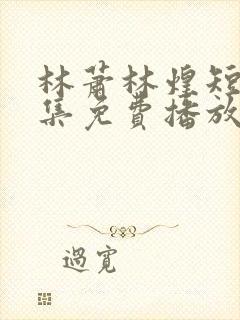 林蕭林煌短
集免費播放
過寬